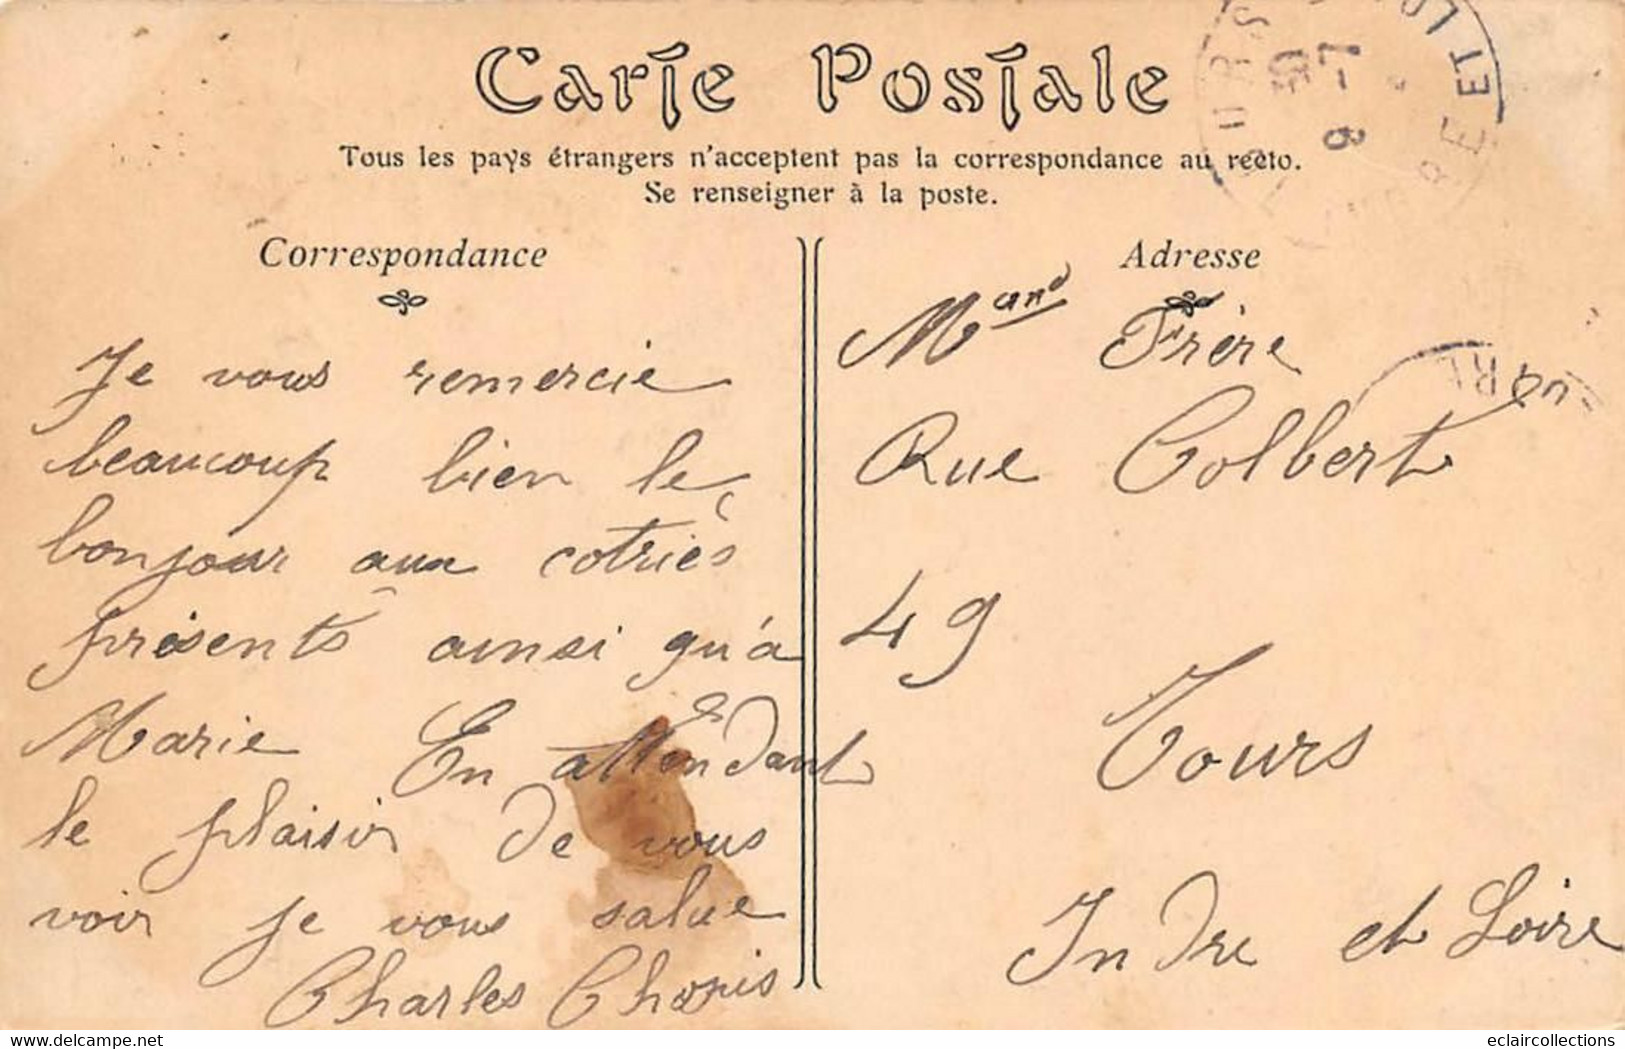 Carte Postale
Tous les pays étrangers n'acceptent pas la correspondance au recto.
Se renseigner à la poste.
Correspondance
Adresse
Je vous remercie
beaucoup bien le
bonjour aux cotriès
présents ainsi qu'à
Marie En attendant
le plaisir de vous
voir je vous salue
Charles
Mand Frère
Rue Colbert
49
Tours
Indre et Loire
delcampe.net
eclaircollections